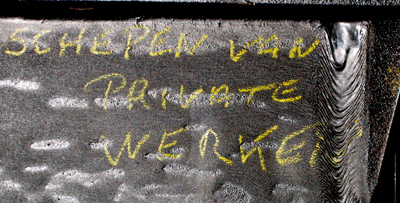 SCHEPEN VAN
PRIVATE
WERKEN